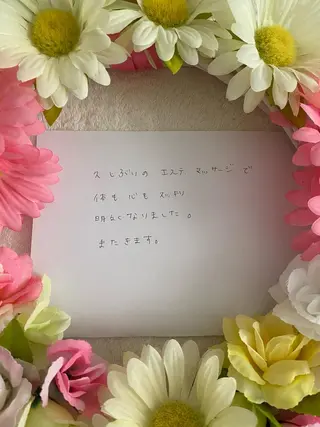 久しぶりの エステ マッサージで
体も心もスッキリ
明るくなりました。
またきます。